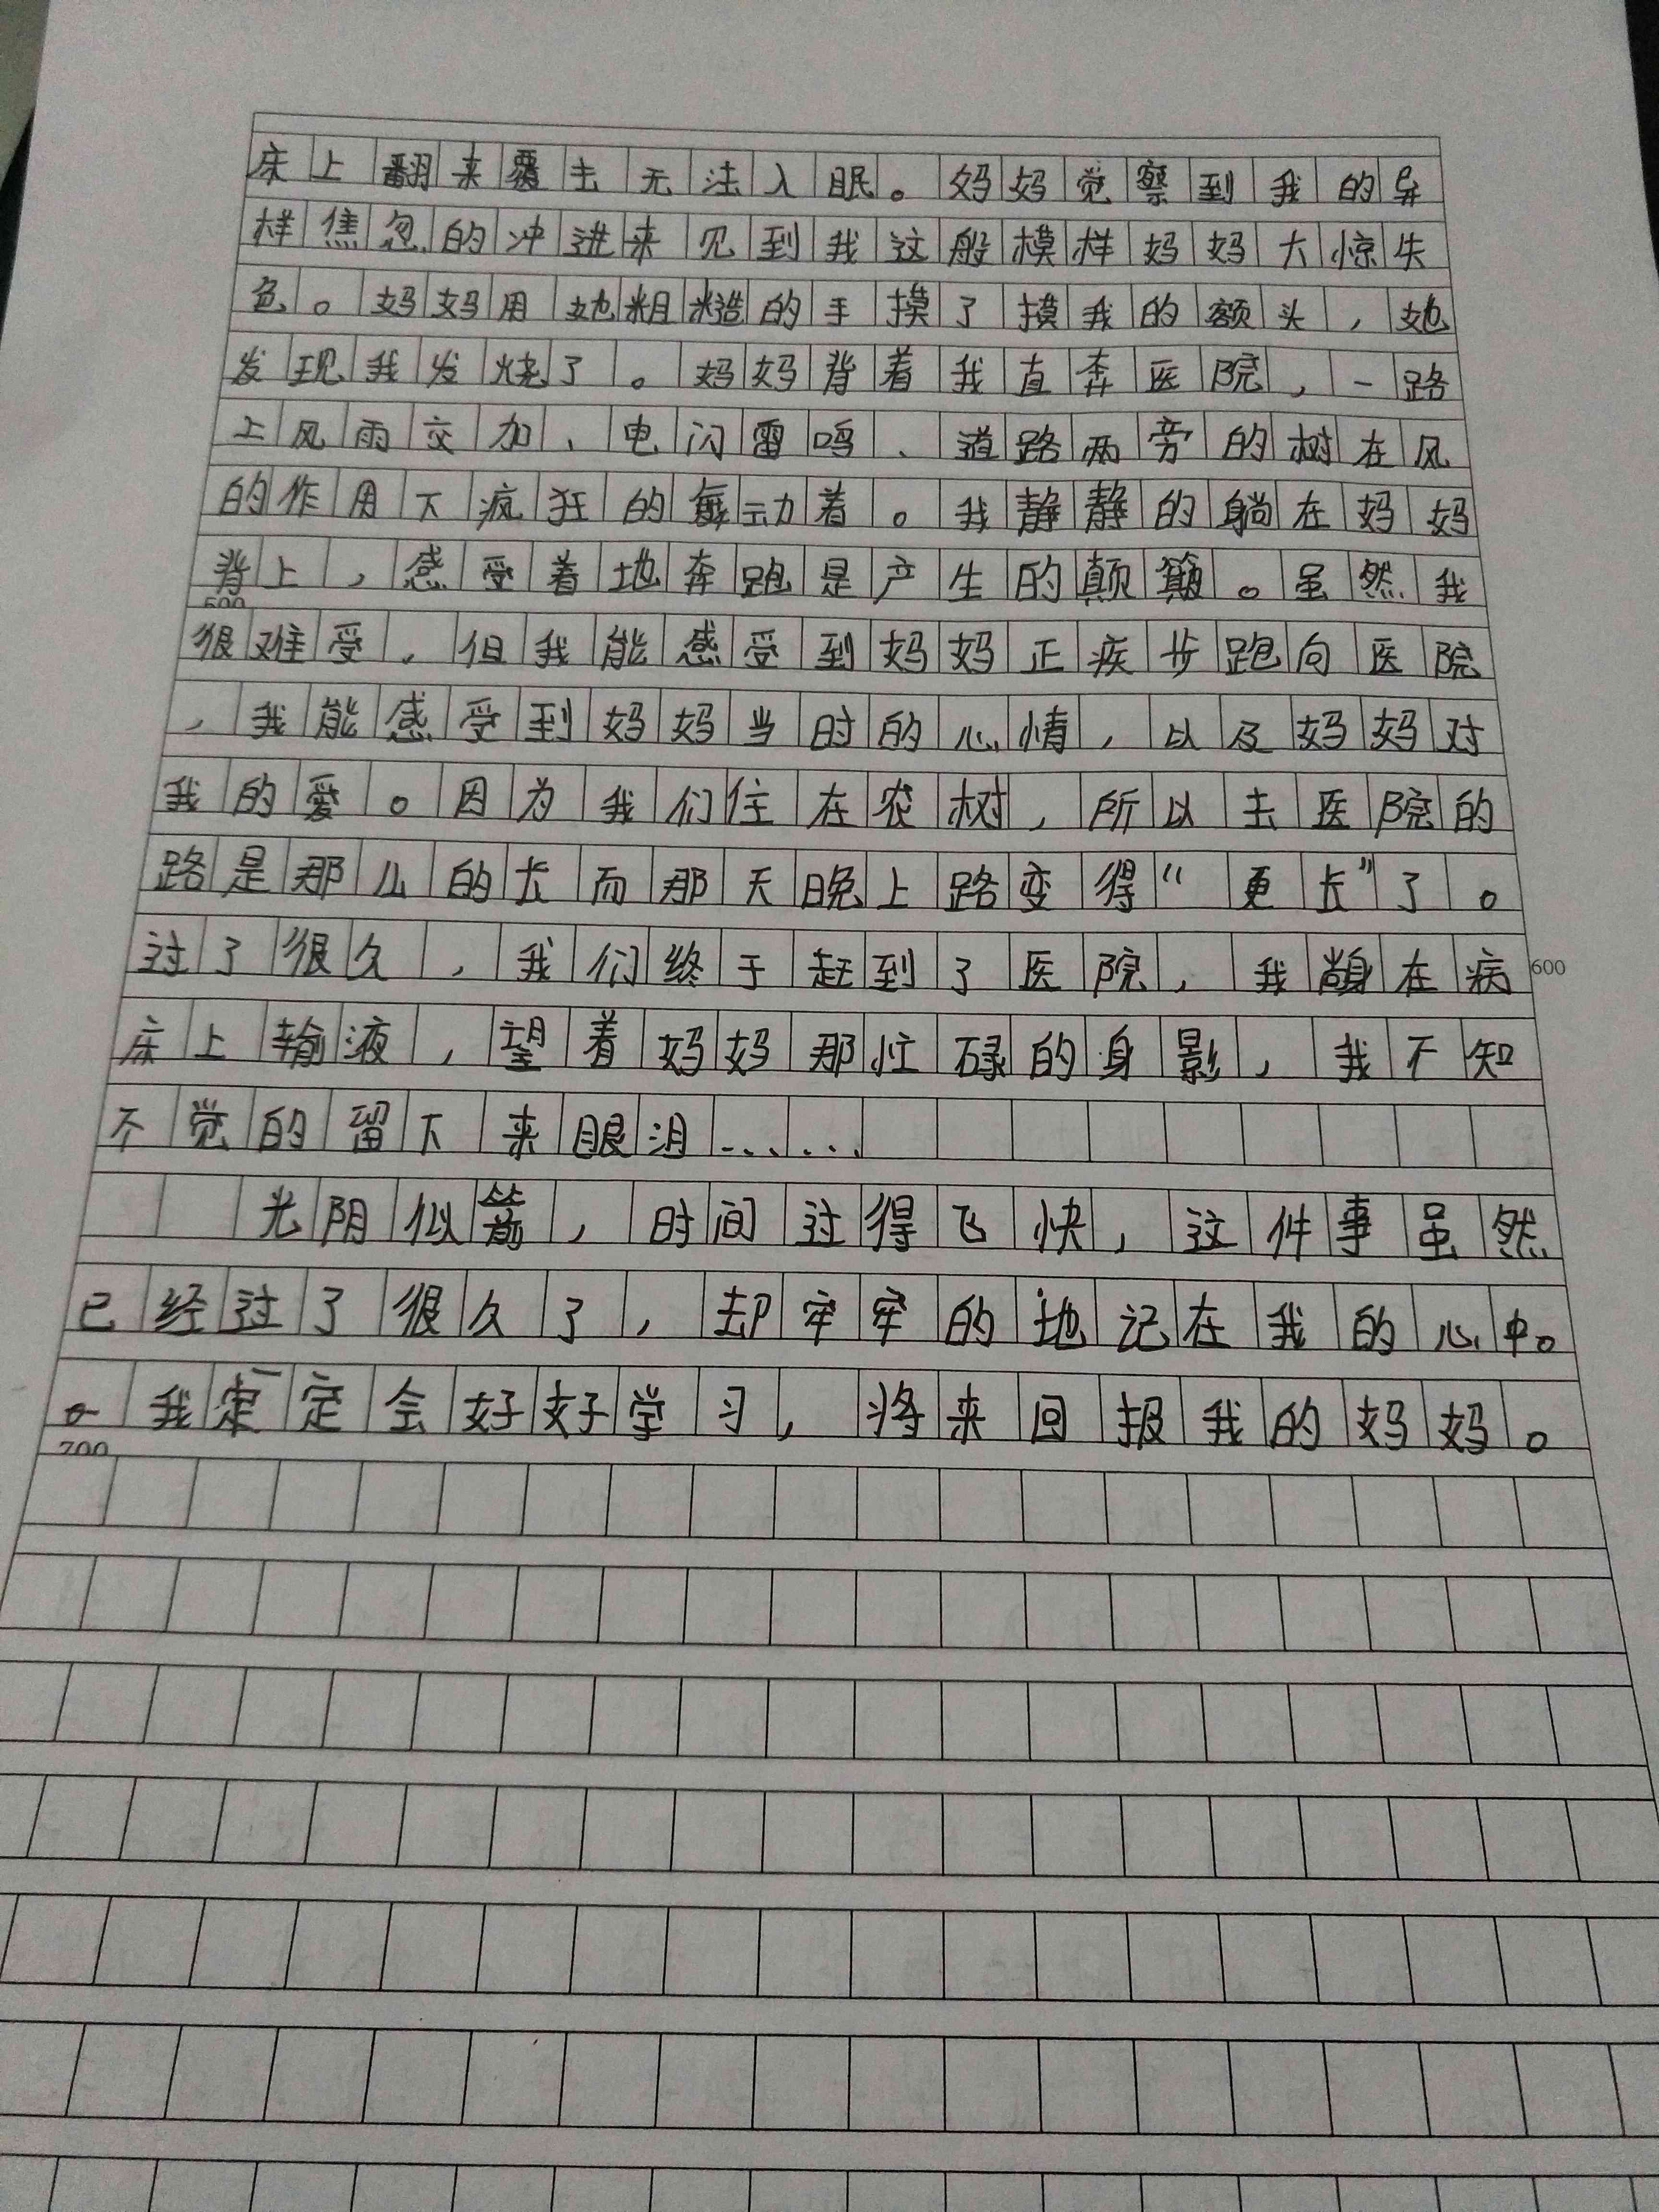 床上翻来覆去无法入眠。妈妈觉察到我的异
样焦忽的冲进来见到我这般模样妈妈大惊失
色。妈妈用她粗糙的手摸了摸我的额头，她
发现我发烧了。妈妈背着我直奔医院，一路
上风雨交加、电闪雷鸣、道路两旁的树在风
的作用下疯狂的舞动着。我静静的躺在妈妈
背上，感受着地奔跑是产生的颠簸。虽然我
500
很难受，但我能感受到妈妈正疾步跑向医院
，我能感受到妈妈当时的心情，以及妈妈对
我的爱。因为我们住在农树，所以去医院的
路是那么的长而那天晚上路变得“更长”了。
过了很久，我们终于赶到了医院，我躺在病
600
床上输液，望着妈妈那忙碌的身影，我不知
不觉的留下来眼泪……
光阴似箭，时间过得飞快，这件事虽然
已经过了很久了，却牢牢的地记在我的心中。
。我定会好好学习，将来回报我的妈妈。
700